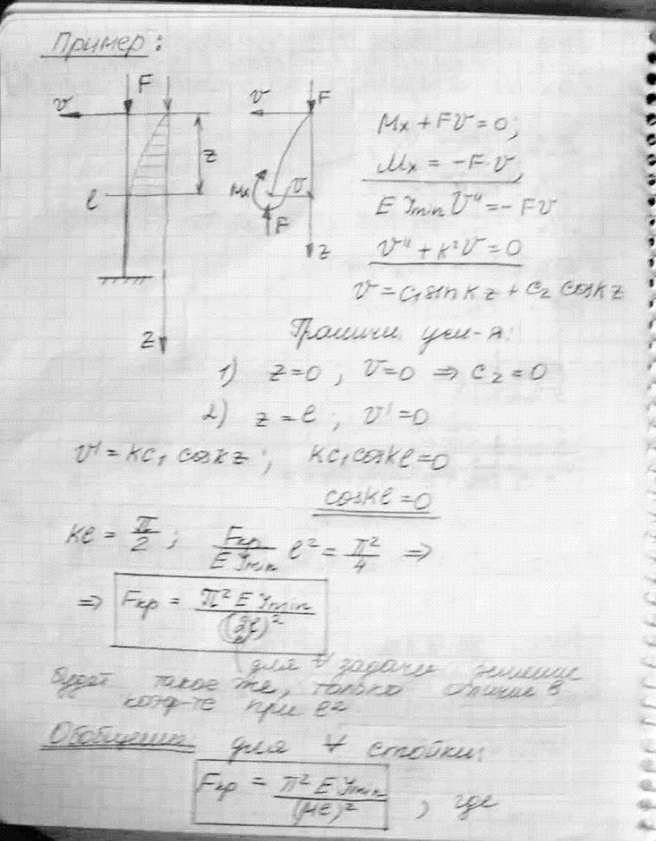 Пример:
F
v
z
l
z
v
F
Mx
v
F
z
Mx + Fv = 0;
Mx = -F·v,
E Jmin v'' = -Fv
v'' + k²v = 0
v = c₁ sin kz + c₂ cos kz
Граничн. усл-я:
1) z=0, v=0 ⇒ c₂=0
2) z=l, v'=0
v' = kc₁ cos kz; kc₁ cos kl = 0
cos kl = 0
kl = π/2; Fкр/(E Jmin) l² = π²/4 ⇒
⇒ Fкр = π² E Jmin/(2l)²
для ∀ задачи решение
будет такое же, только отличие в
коэф-те при l²
Обобщение: для ∀ стойки:
Fкр = π² E Jmin/(μl)², где